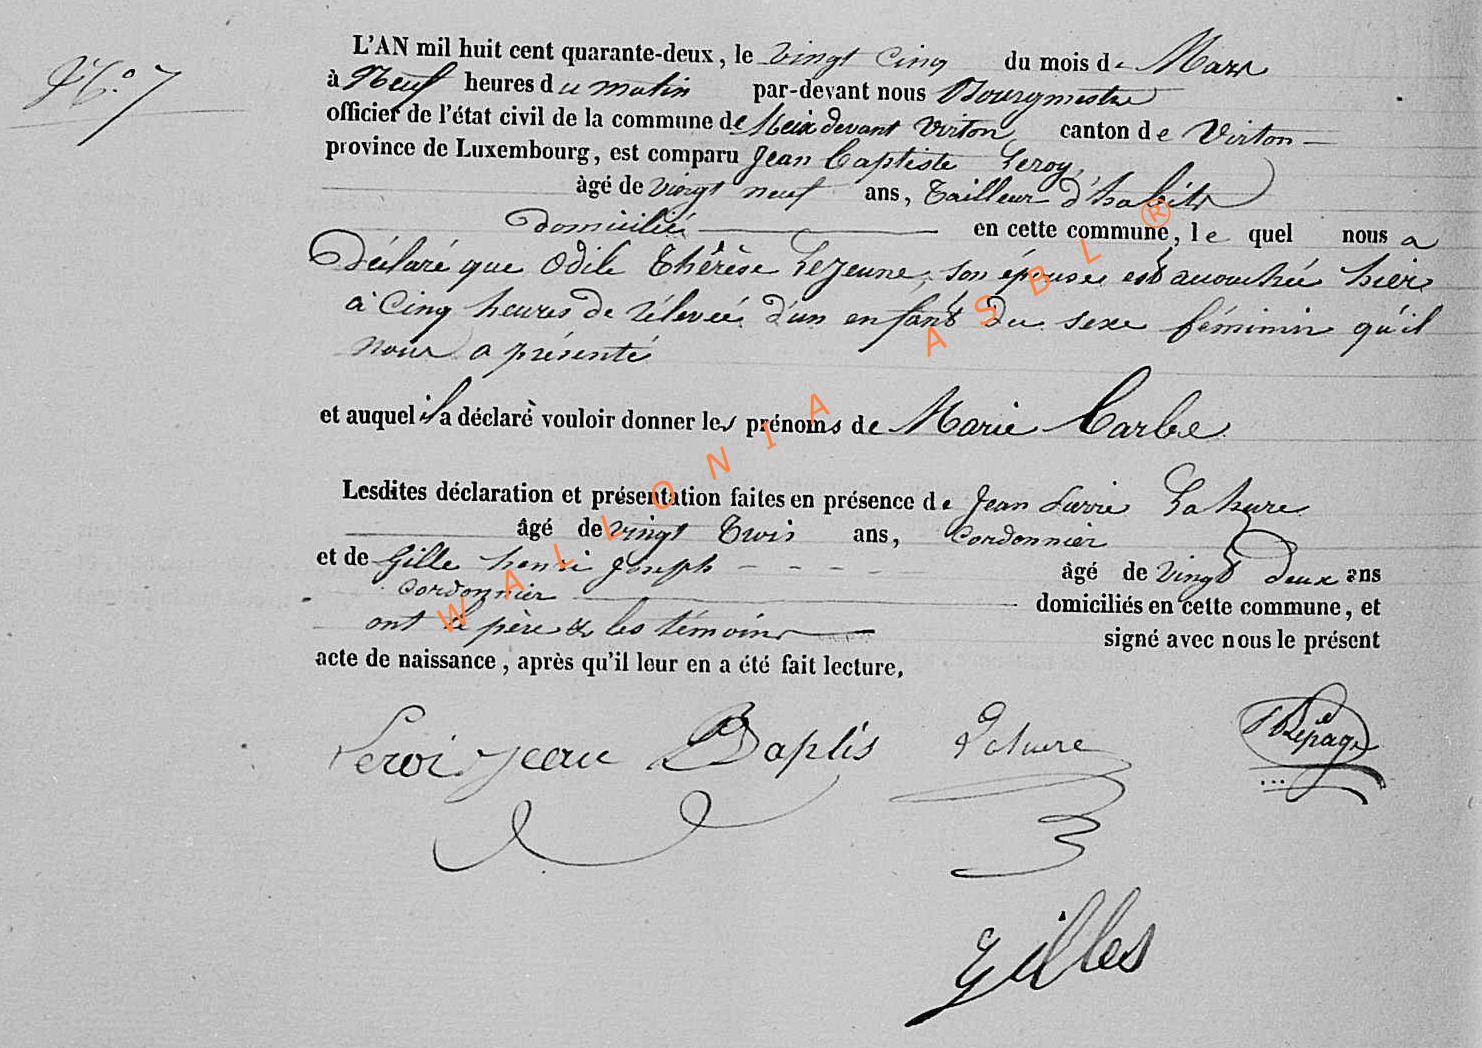 N.° 7
L'AN mil huit cent quarante-deux, le vingt Cinq du mois de Mars
à Neuf heures du matin par-devant nous Bourgmestre
officier de l'état civil de la commune de Meix devant Virton, canton de Virton
province de Luxembourg, est comparu Jean Baptiste Leroy,
âgé de vingt neuf ans, Tailleur d'habits
Domicilié en cette commune, le quel nous a
Déclaré que Odile Thérèse Lejeune, son épouse est accouchée hier
à Cinq heures de rélevée, d'un enfant du sexe féminin qu'il
nous a présenté
et auquel il a déclaré vouloir donner les prénoms de Marie Barbe
Lesdites déclaration et présentation faites en présence de Jean Pierre Lahure
âgé de vingt Trois ans, Cordonnier
et de Gille henri Joseph - - - - âgé de vingt deux ans
Cordonnier domiciliés en cette commune, et
ont le père & les témoins signé avec nous le présent
acte de naissance, après qu'il leur en a été fait lecture.
Leroi Jean Baptis Lahure Lepage
Gilles
WALLONIA ASBL ®